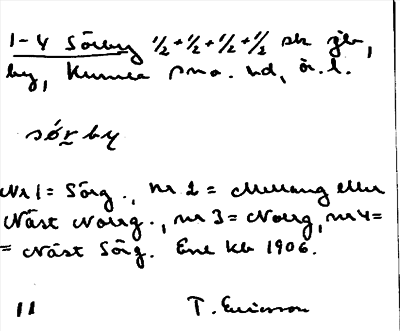 1-4 Sörby 1/2+1/2+1/2+1/2 sk jb,
by, Kumla sn o. hd, ör. l.
sǿr by
Nr 1 = Sörg., nr 2 = Mellang eller
Näst Norrg., nr 3 = Norrg, nr 4 =
= Näst Sörg. Enl kb 1906.
11 T. Ericsson